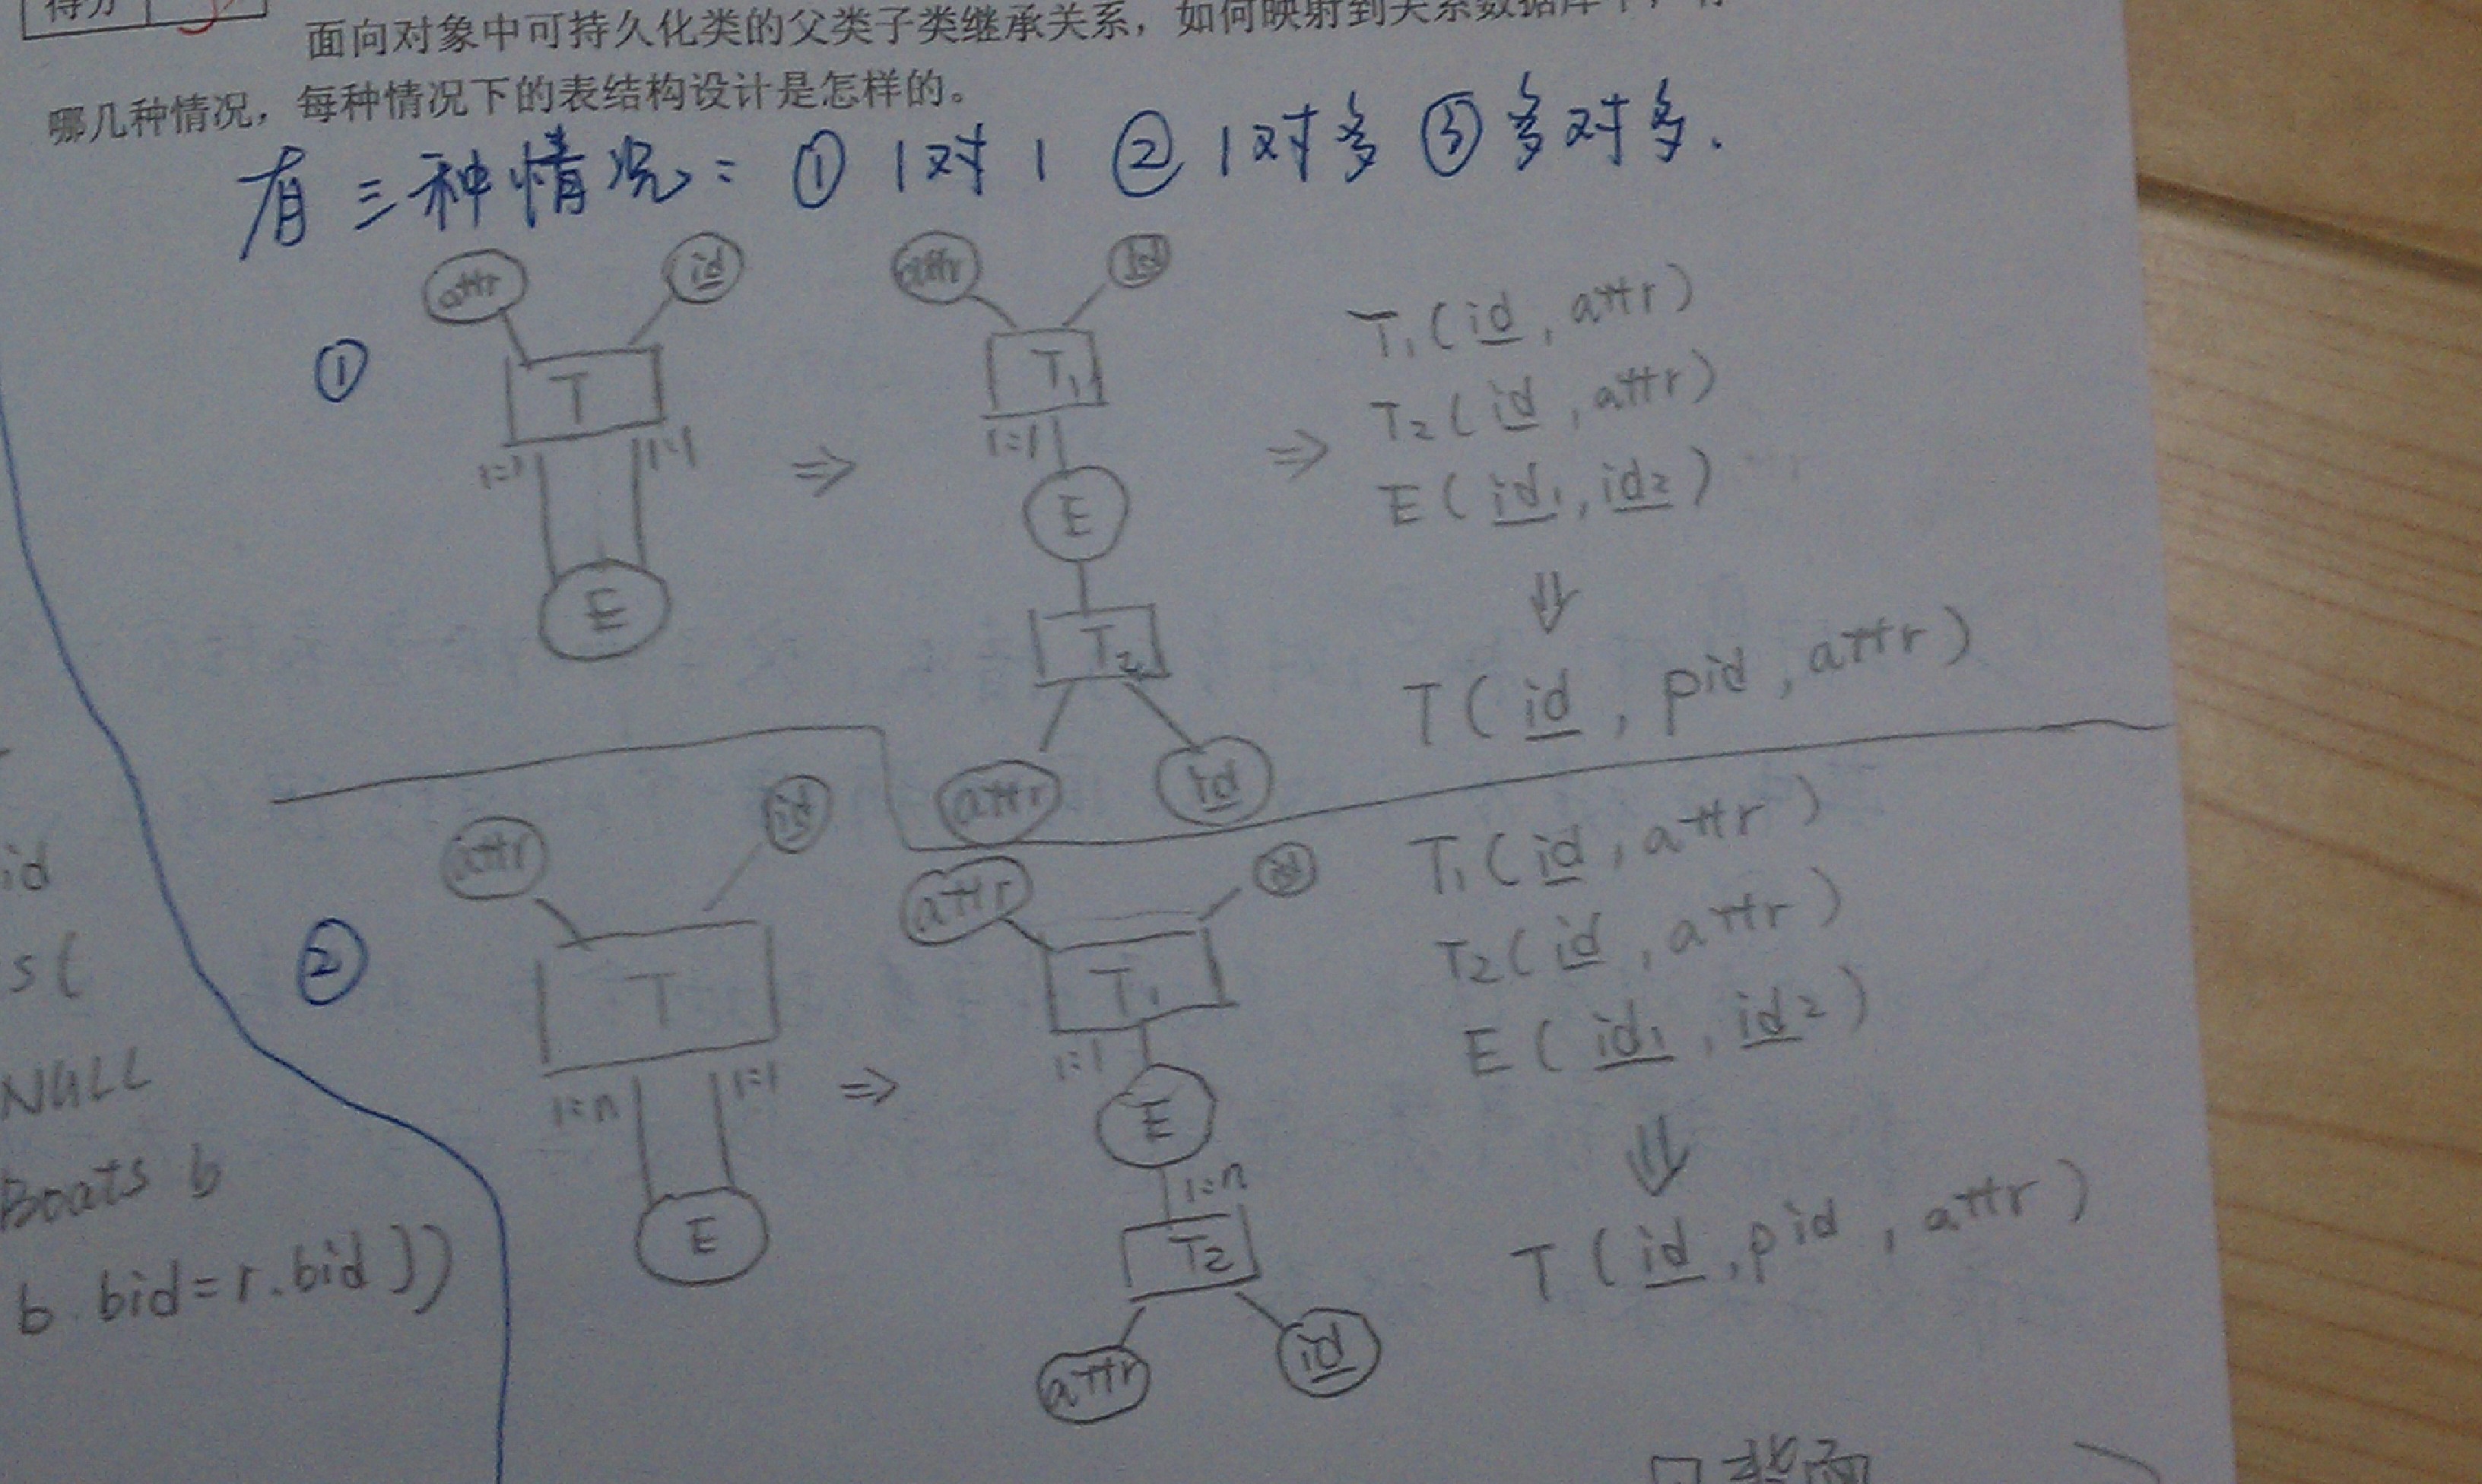 得分
面向对象中可持久化类的父类子类继承关系，如何映射到关系数据库中，有
哪几种情况，每种情况下的表结构设计是怎样的。
有三种情况: ① 1对1 ② 1对多 ③ 多对多.
①
attr id
T
1:1 1:1
E
⇒
attr id
T₁
1:1
E
T₂
attr id
⇒
T₁(id, attr)
T₂(id, attr)
E(id₁, id₂)
⇓
T(id, pid, attr)
②
attr id
T
1:n 1:1
E
⇒
attr id
T₁
1:1
E
1:n
T₂
attr id
T₁(id, attr)
T₂(id, attr)
E(id₁, id₂)
⇓
T(id, pid, attr)
id
s(
NULL
Boats b
b.bid=r.bid))
背面